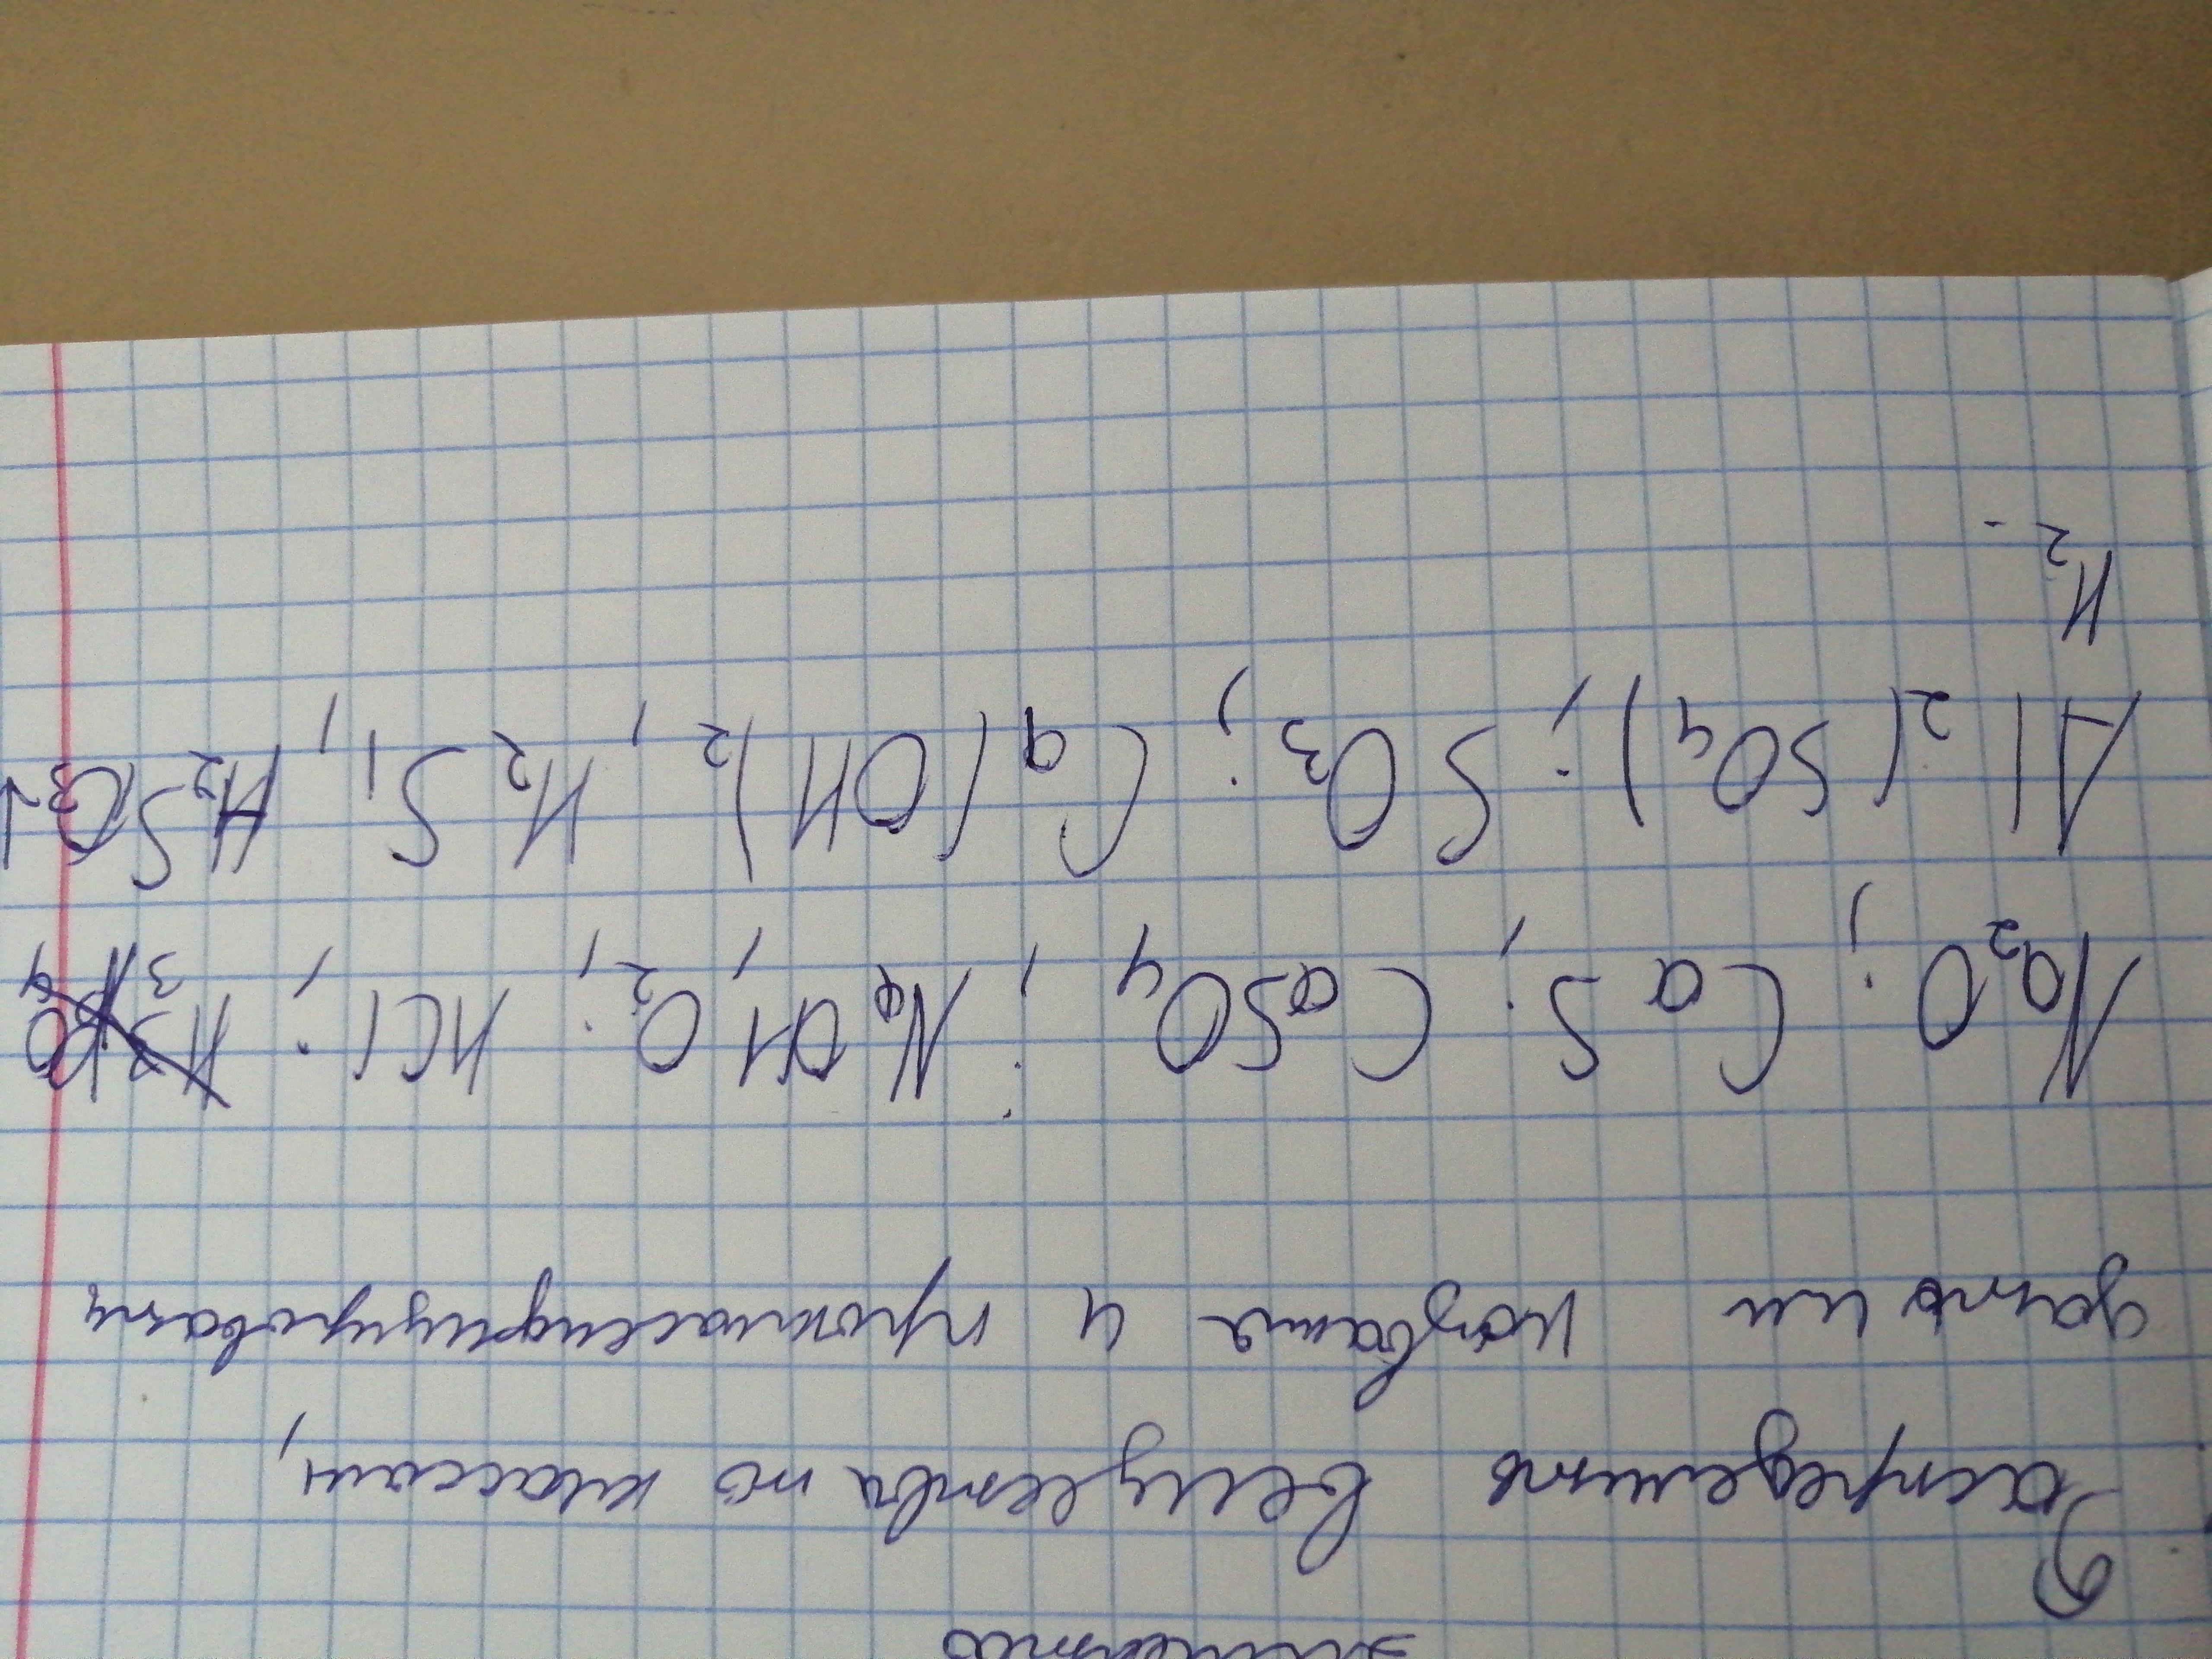 Распределить вещества по классам,
дать им названия и проклассифицировать
Na2O; CaS; CaSO4; NaOH; O2; HCl; H3PO4
Al2(SO4); SO3; Ca(OH)2, H2S, H2SO3,
H2.